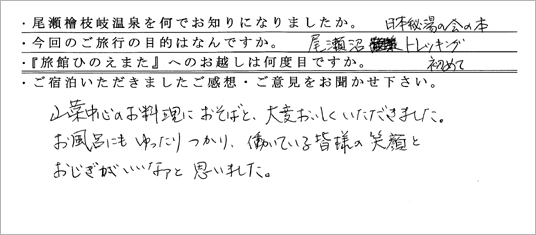 ・尾瀬檜枝岐温泉を何でお知りになりましたか。 日本秘湯の会の本
・今回のご旅行の目的はなんですか。 尾瀬沼 トレッキング
・『旅館ひのえまた』へのお越しは何度目ですか。 初めて
・ご宿泊いただきましたご感想・ご意見をお聞かせ下さい。
山菜中心のお料理におそばと、大変おいしくいただきました。
お風呂にもゆったりつかり、働いている皆様の笑顔と
おじぎがいいなあと思いました。